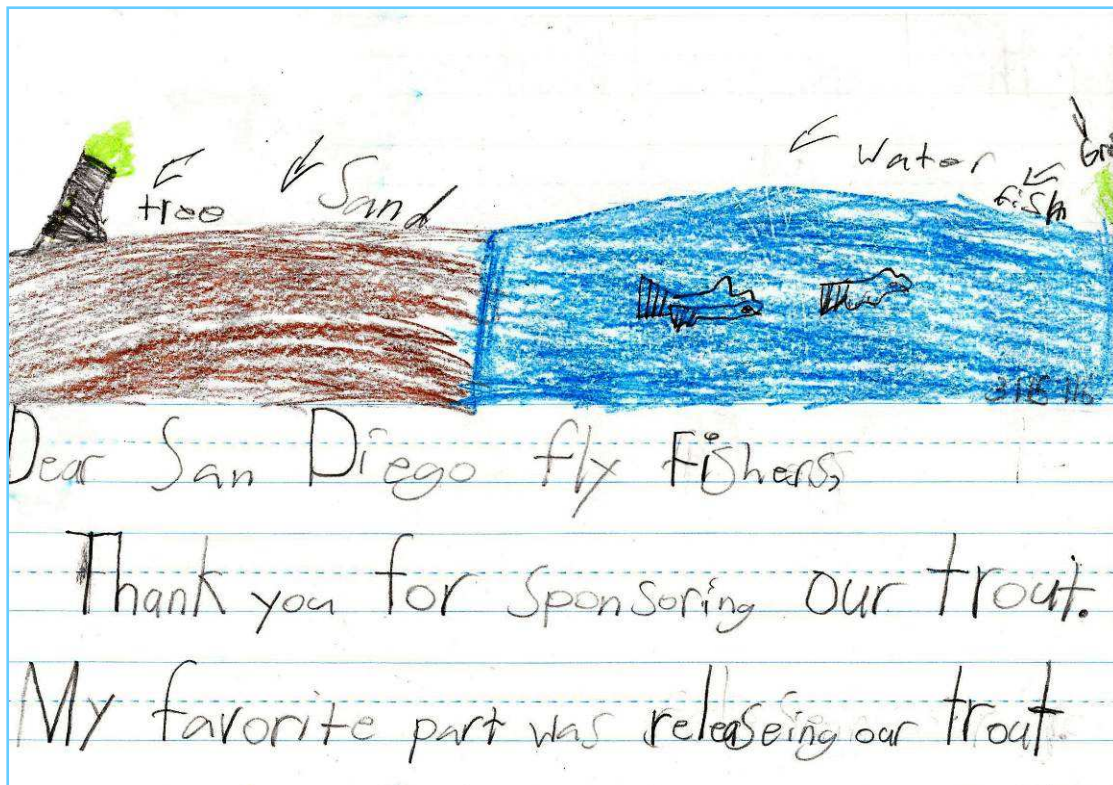 Water
tree
Sand
fish
Dear San Diego fly Fishers,
Thank you for sponsoring our trout.
My favorite part was releaseing our trout.